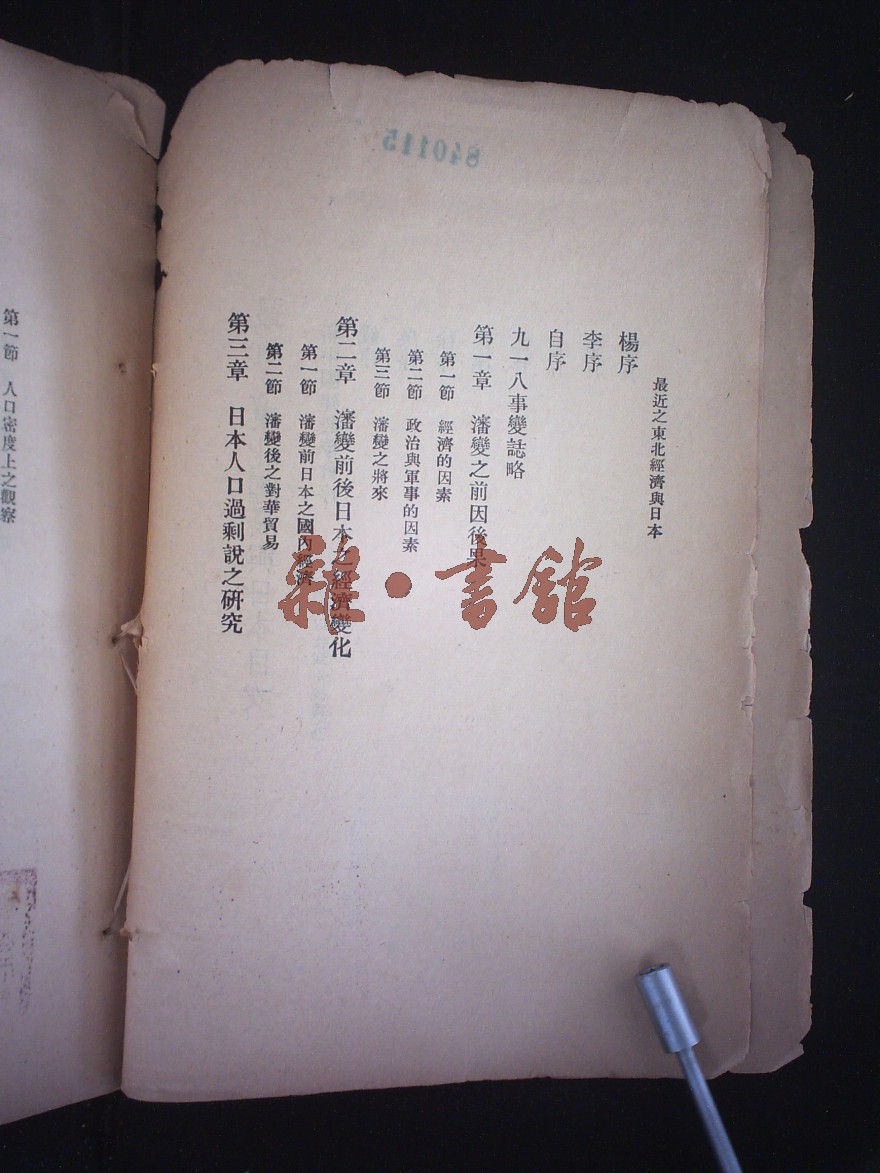 840115
最近之東北經濟與日本
楊序
李序
自序
九一八事變誌略
第一章 瀋變之前因後果
第一節 經濟的因素
第二節 政治與軍事的因素
第三節 瀋變之將來
第二章 瀋變前後日本之經濟變化
第一節 瀋變前日本之國內經濟
第二節 瀋變後之對華貿易
第三章 日本人口過剩說之研究
第一節 人口密度上之觀察
雜·書館